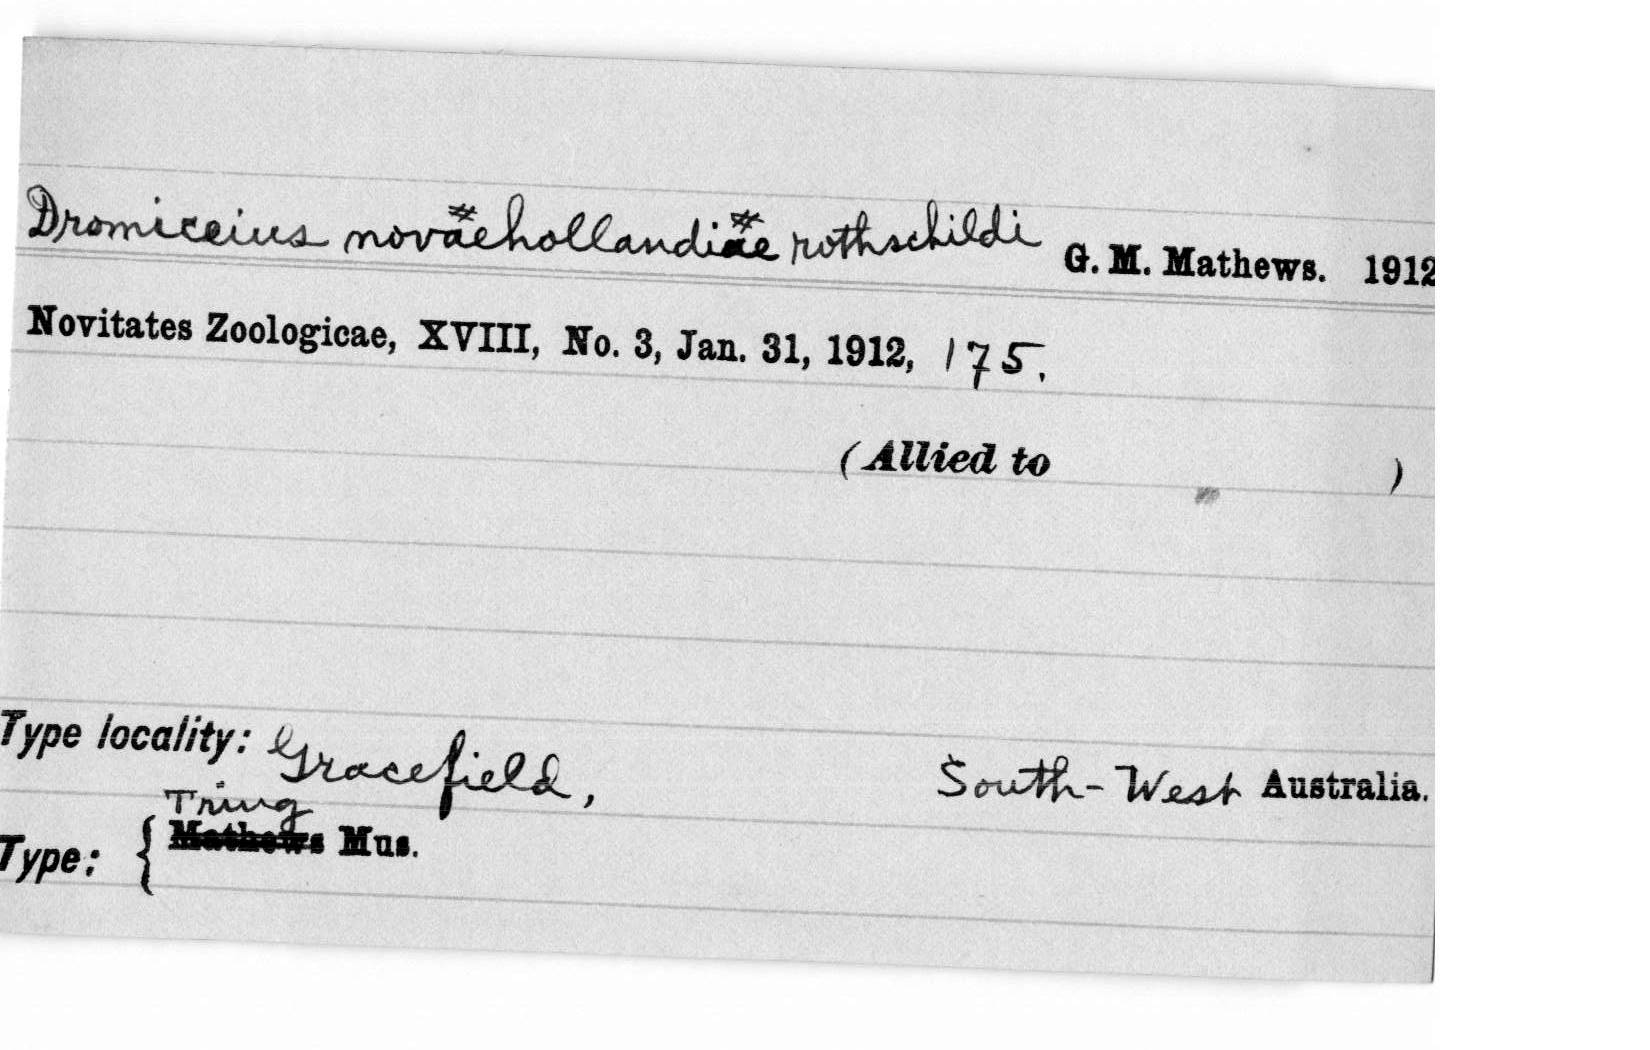 Dromiceius novaehollandiae rothschildi G. M. Mathews. 1912
Novitates Zoologicae, XVIII, No. 3, Jan. 31, 1912, 175.
(Allied to )
Type locality: Gracefield, South-West Australia.
Tring
Type: { Mathews Mus.